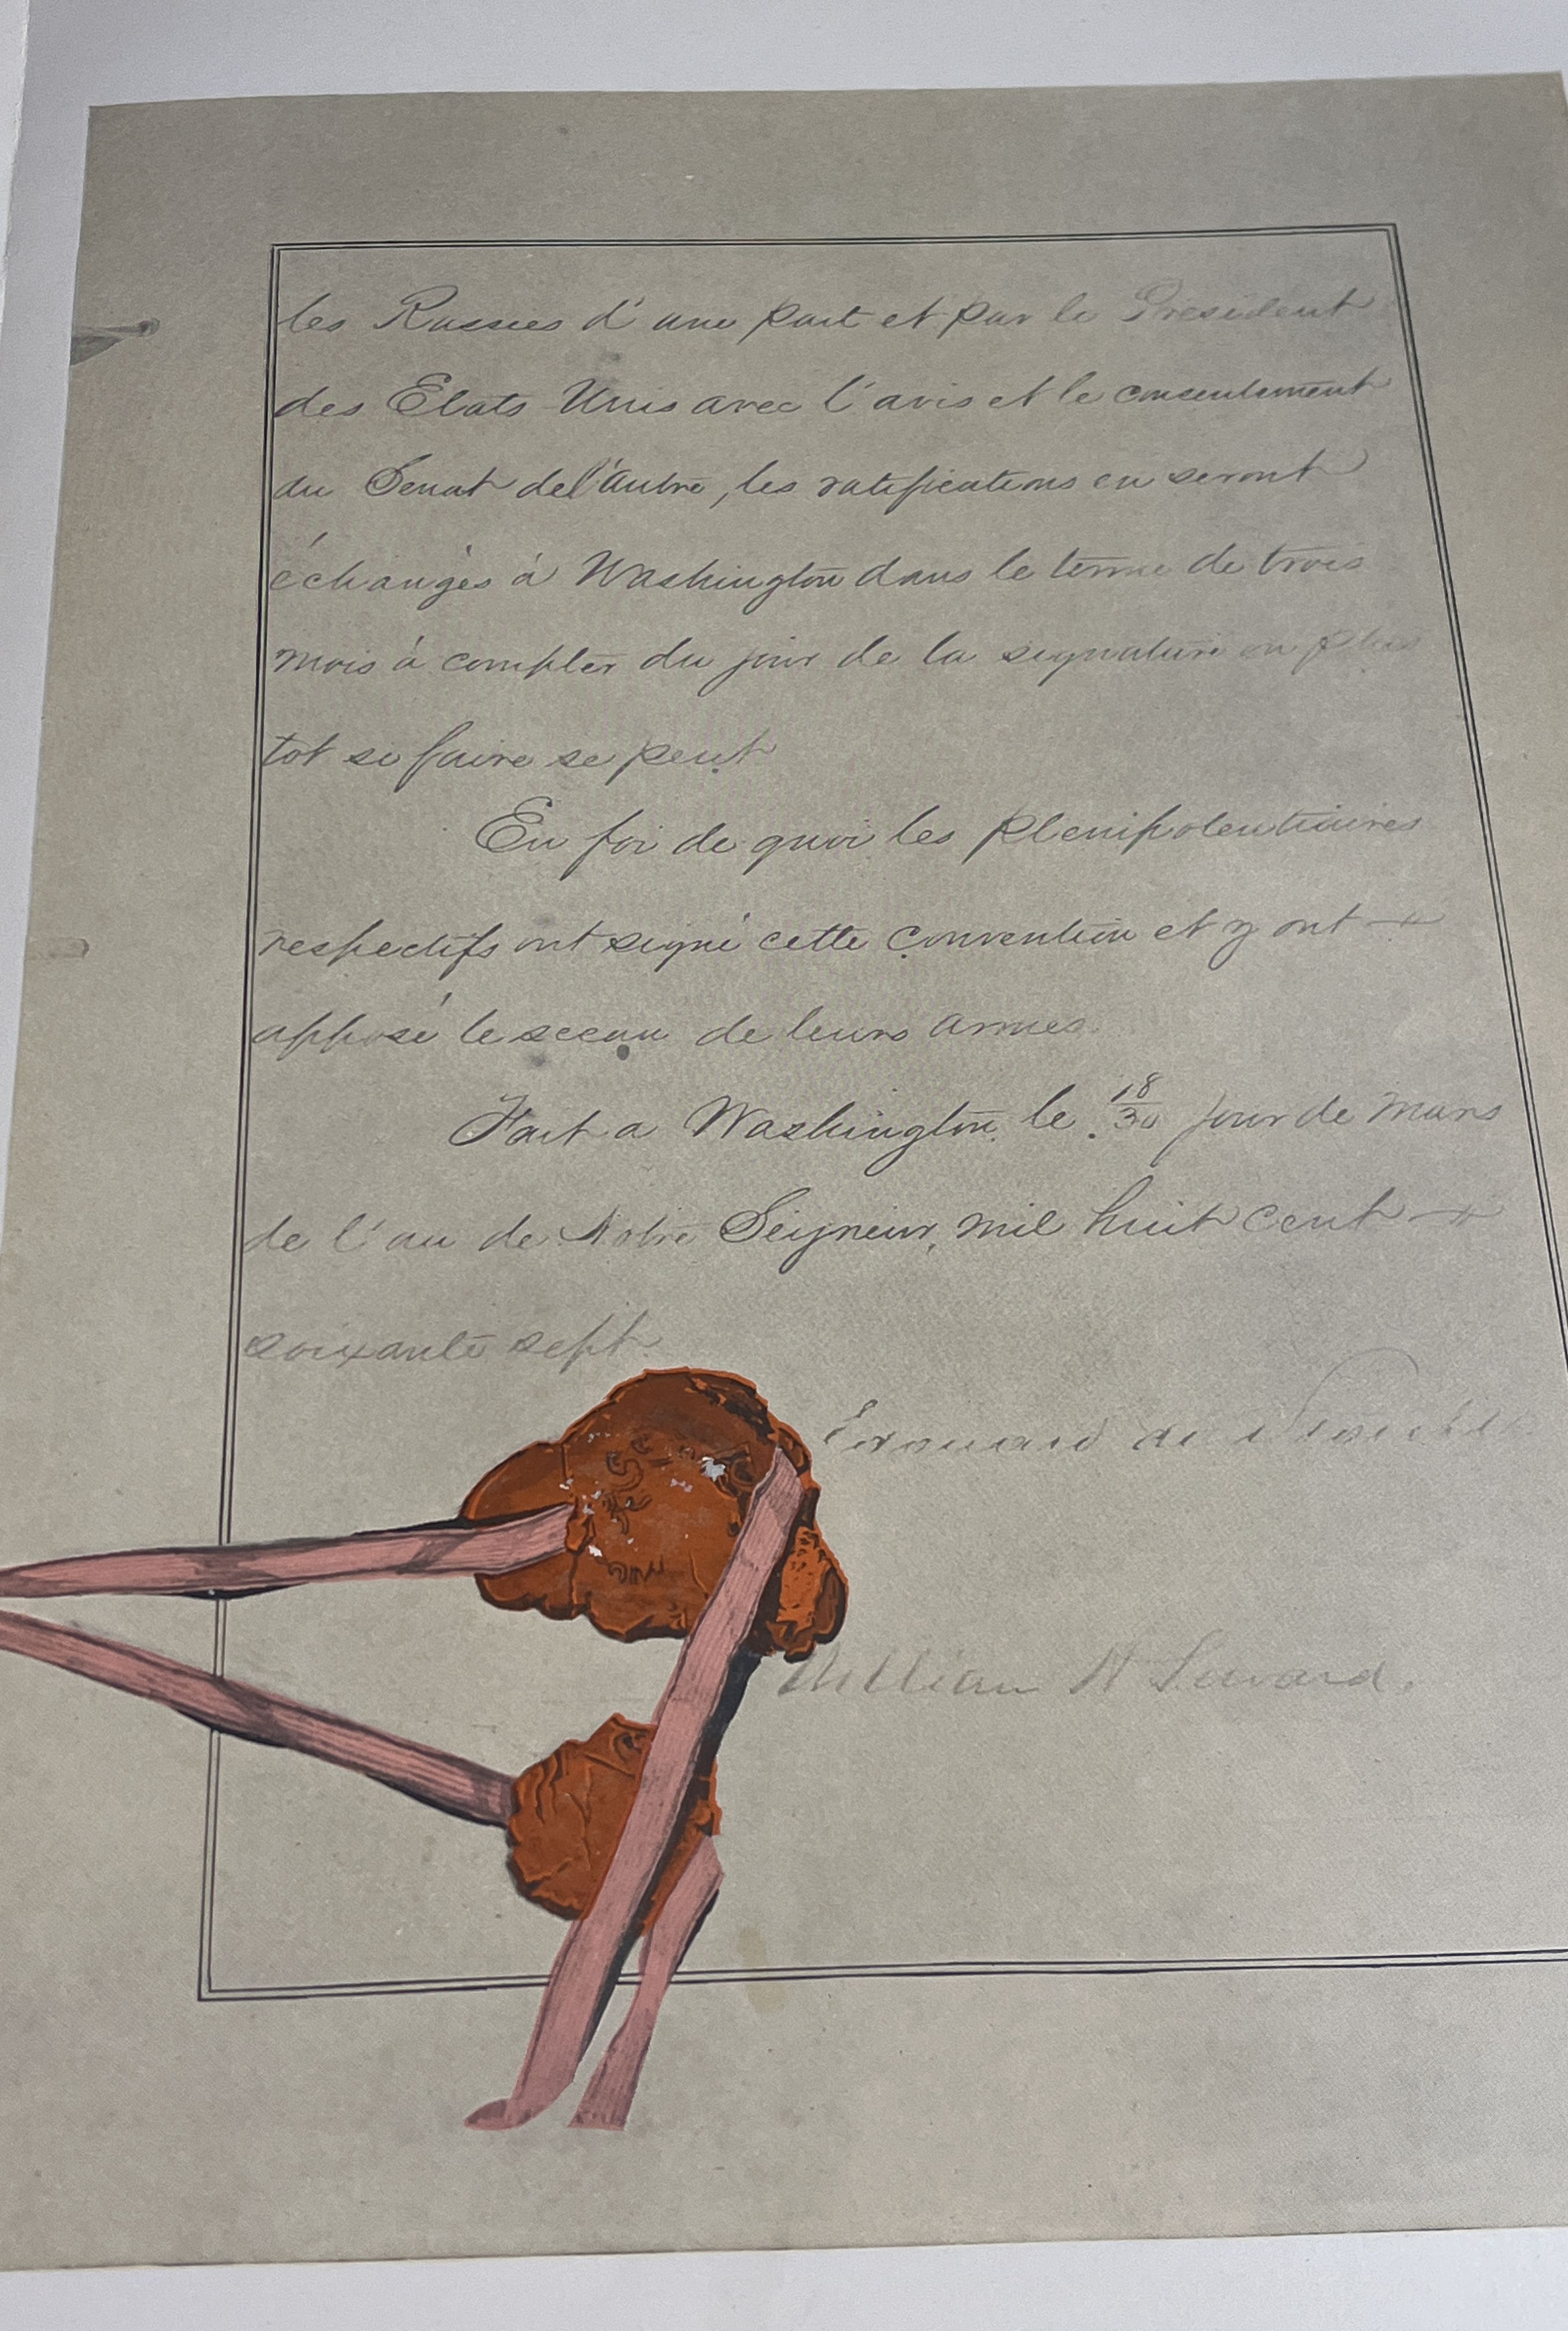 les Russies d'une part et par le Président
des Etats Unis avec l'avis et le consentement
du Senat de l'autre, les ratifications en seront
échangés à Washington dans le terme de trois
mois à compter du jour de la signature ou plus
tot si faire se peut
En foi de quoi les plenipotentiaires
respectifs ont signé cette convention et y ont
apposé le sceau de leurs armes.
Fait a Washington le 18/30 jour de Mars
de l'an de Notre Seigneur, mil huit cent
soixante sept.
Edouard de Stoeckl
William H Seward.